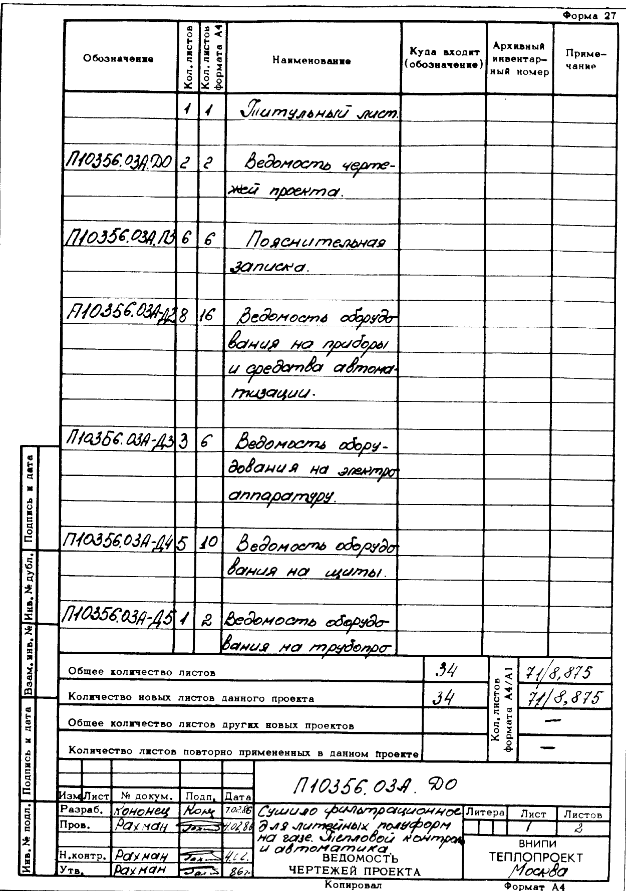 Форма 27
Обозначение Кол. листов Кол. листов формата А4 Наименование Куда входит (обозначение) Архивный инвентарный номер Примечание
1 1 Титульный лист.
П10356.03А.ДО 2 2 Ведомость черте-
жей проекта.
П10356.03А.ПЗ 6 6 Пояснительная
записка.
П10356.03А-Д2 8 16 Ведомость оборудо
вания на приборы
и средства автома-
тизации.
П10356.03А-Д3 3 6 Ведомость обору-
дования на электро
аппаратуру.
П10356.03А-Д4 5 10 Ведомость оборудо
вания на щиты.
П10356.03А-Д5 1 2 Ведомость оборудо
вания на трубопро
Общее количество листов 34 Кол. листов формата А4/А1 71/8,875
Количество новых листов данного проекта 34 71/8,875
Общее количество листов других новых проектов —
Количество листов повторно примененных в данном проекте —
П10356.03А.ДО
Изм Лист № докум. Подп. Дата
Разраб. Кононец
Пров. Рахман
Н.контр. Рахман
Утв. Рахман 86г
Сушило фильтрационное
для литейных полуформ
на базе. Тепловой контроль
и автоматика
ВЕДОМОСТЬ
ЧЕРТЕЖЕЙ ПРОЕКТА
Литера Лист Листов
1 2
ВНИПИ
ТЕПЛОПРОЕКТ
Москва
Копировал Формат А4
Инв. № подл. Подпись и дата Взам. инв. № Инв. № дубл. Подпись и дата